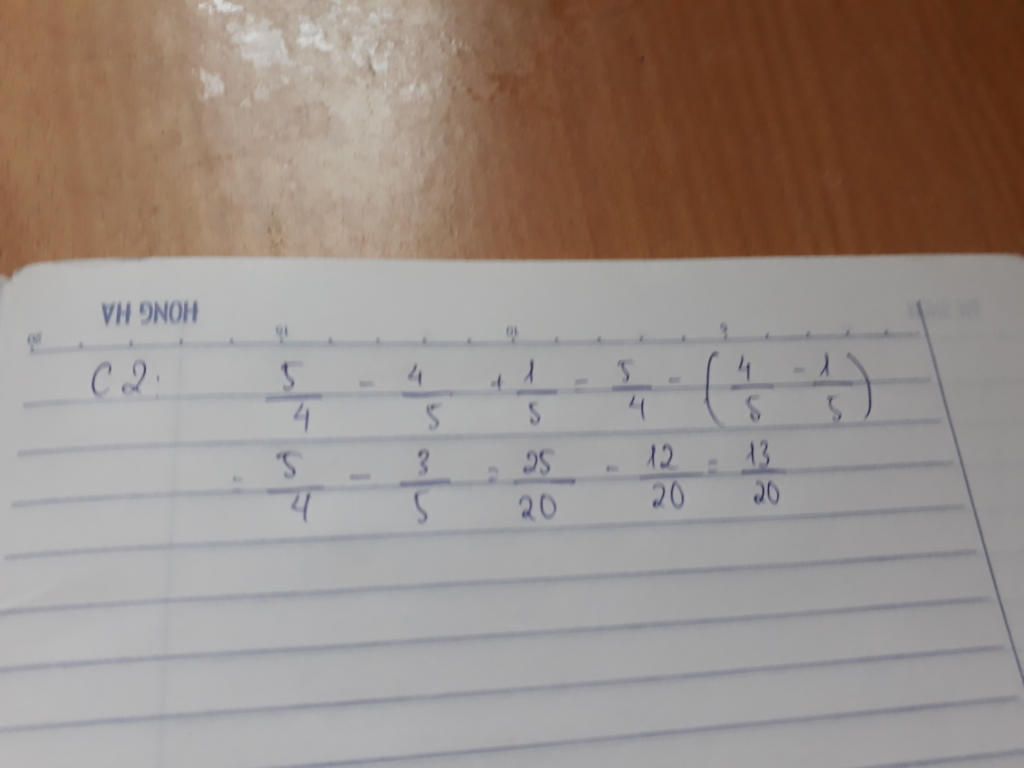 HONG HA
20 15 10 5
C2: 5/4 - 4/5 + 1/5 = 5/4 - (4/5 - 1/5)
= 5/4 - 3/5 = 25/20 - 12/20 = 13/20